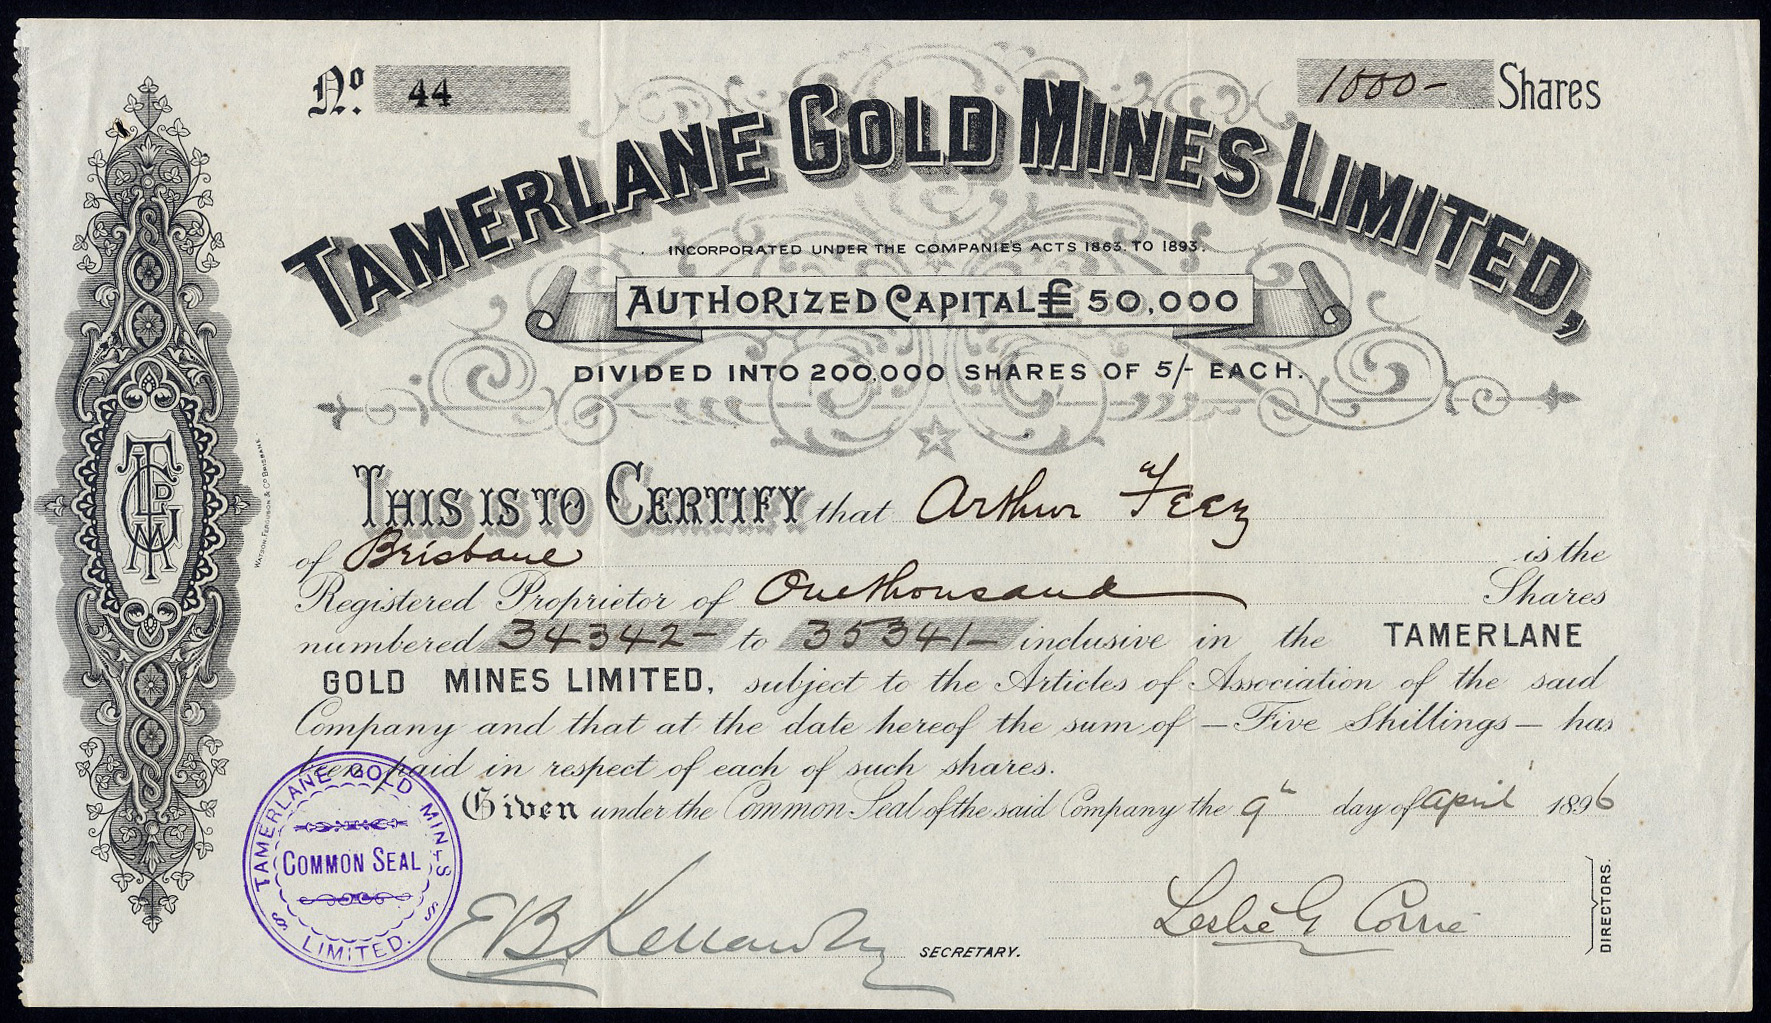 No. 44
1000- Shares
TAMERLANE GOLD MINES LIMITED,
INCORPORATED UNDER THE COMPANIES ACTS 1863. TO 1893.
AUTHORIZED CAPITAL £ 50,000
DIVIDED INTO 200,000 SHARES OF 5/- EACH.
THIS IS TO CERTIFY that Arthur Feez
of Brisbane is the
Registered Proprietor of One thousand Shares
numbered 34342- to 35341- inclusive in the TAMERLANE
GOLD MINES LIMITED, subject to the Articles of Association of the said
Company and that at the date hereof the sum of — Five Shillings — has
been paid in respect of each of such shares.
Given under the Common Seal of the said Company the 9th day of April 1896
TAMERLANE GOLD MINES
COMMON SEAL
LIMITED.
SECRETARY.
Leslie G Corrie
DIRECTORS.
WATSON, FERGUSON & CO BRISBANE.